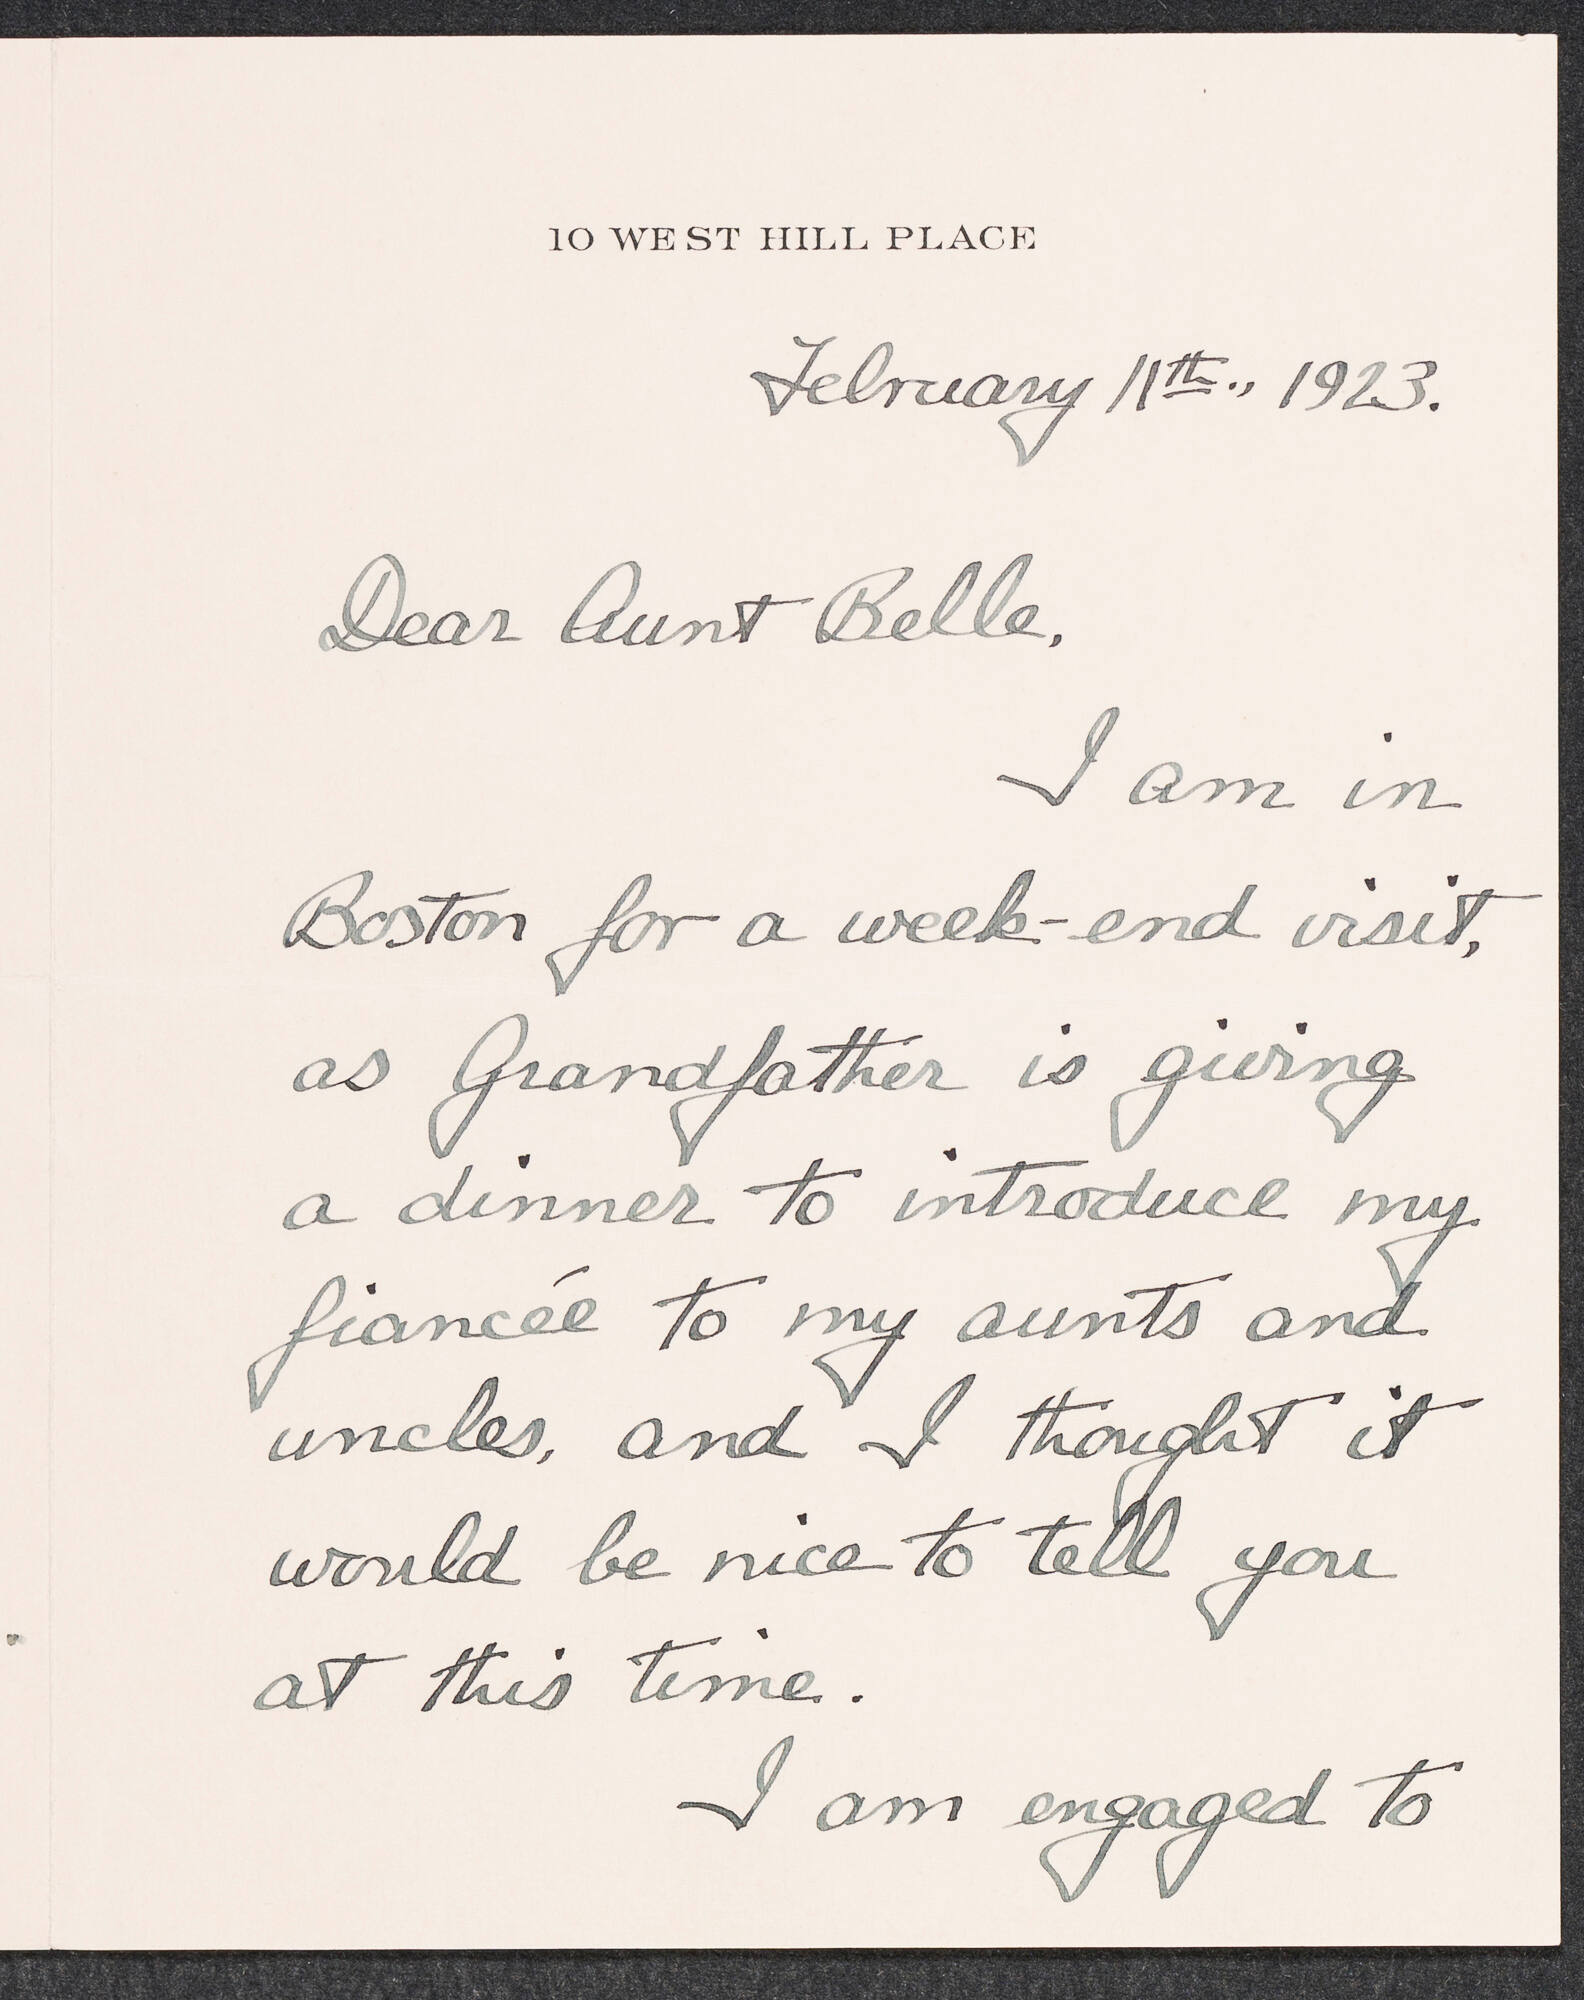 10 WEST HILL PLACE
February 11th., 1923.
Dear Aunt Belle,
I am in
Boston for a week-end visit,
as Grandfather is giving
a dinner to introduce my
fiancée to my aunts and
uncles, and I thought it
would be nice to tell you
at this time.
I am engaged to